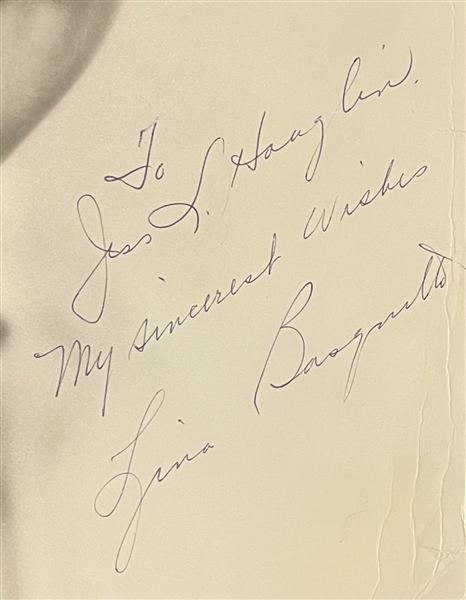 To
Jess L. Hoaglin.
My sincerest Wishes
Lina Basquette